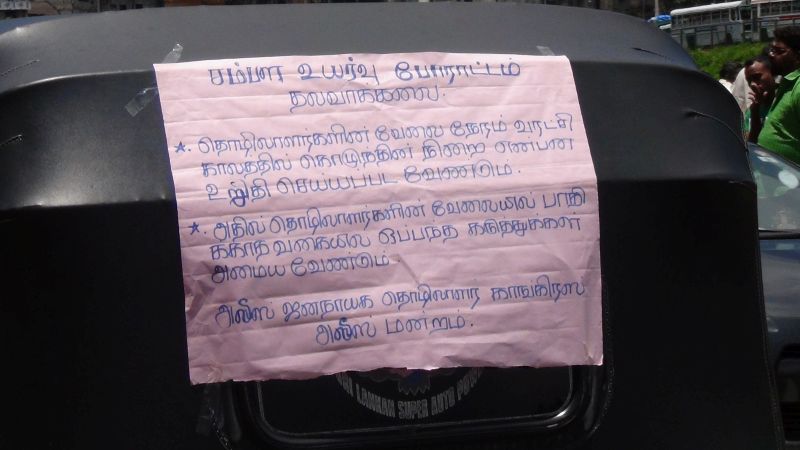 சம்பள உயர்வு போராட்டம்
தலவாக்கலை.
★. தொழிலாளர்களின் வேலை நேரம் வரட்சி
காலத்தில் கொழுந்தின் நிறை என்பன
உறுதி செய்யப்பட வேண்டும்.
★. அதில் தொழிலாளர்களின் வேலையில் பாதி
க்காத வகையில் ஒப்பந்த கருத்துக்கள்
அமைய வேண்டும்
அலிஸ் ஜனநாயக தொழிலாளர் காங்கிரஸ்
அலிஸ் மன்றம்.
LANKAN SUPER AUTO